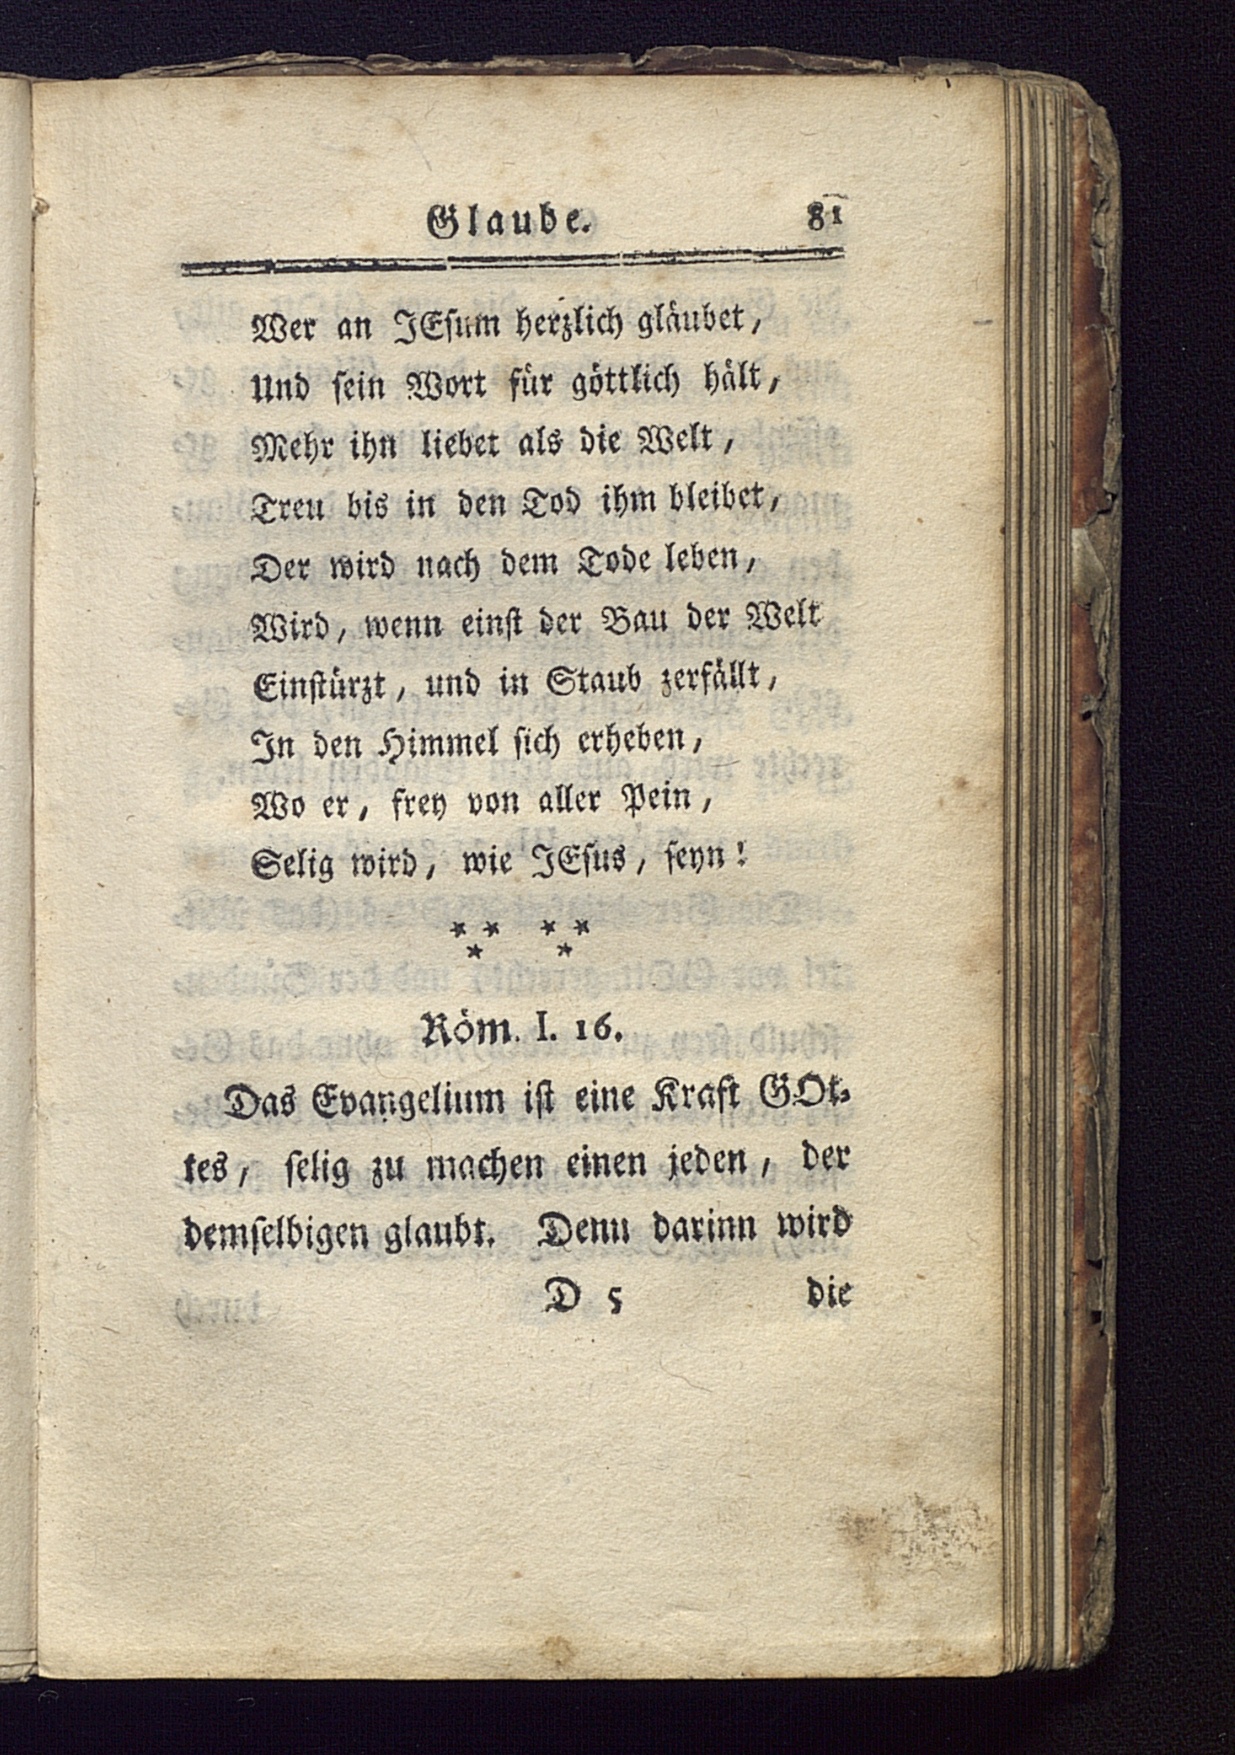 Glaube. 81
Wer an JEsum herzlich gläubet,
Und sein Wort für göttlich hält,
Mehr ihn liebet als die Welt,
Treu bis in den Tod ihm bleibet,
Der wird nach dem Tode leben,
Wird, wenn einst der Bau der Welt
Einstürzt, und in Staub zerfällt,
In den Himmel sich erheben,
Wo er, frey von aller Pein,
Selig wird, wie JEsus, seyn!
* * * *
* *
Röm. I. 16.
Das Evangelium ist eine Kraft GOt-
tes, selig zu machen einen jeden, der
demselbigen glaubt. Denn darinn wird
D 5 die